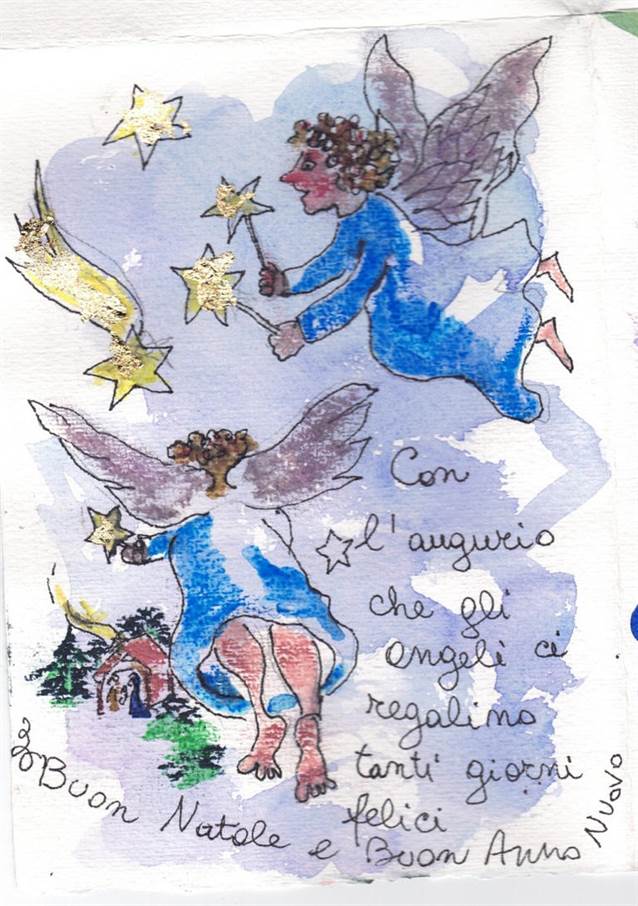 Con
l'augurio
che gli
angeli ci
regalino
tanti giorni
felici
Buon Natale e Buon Anno Nuovo